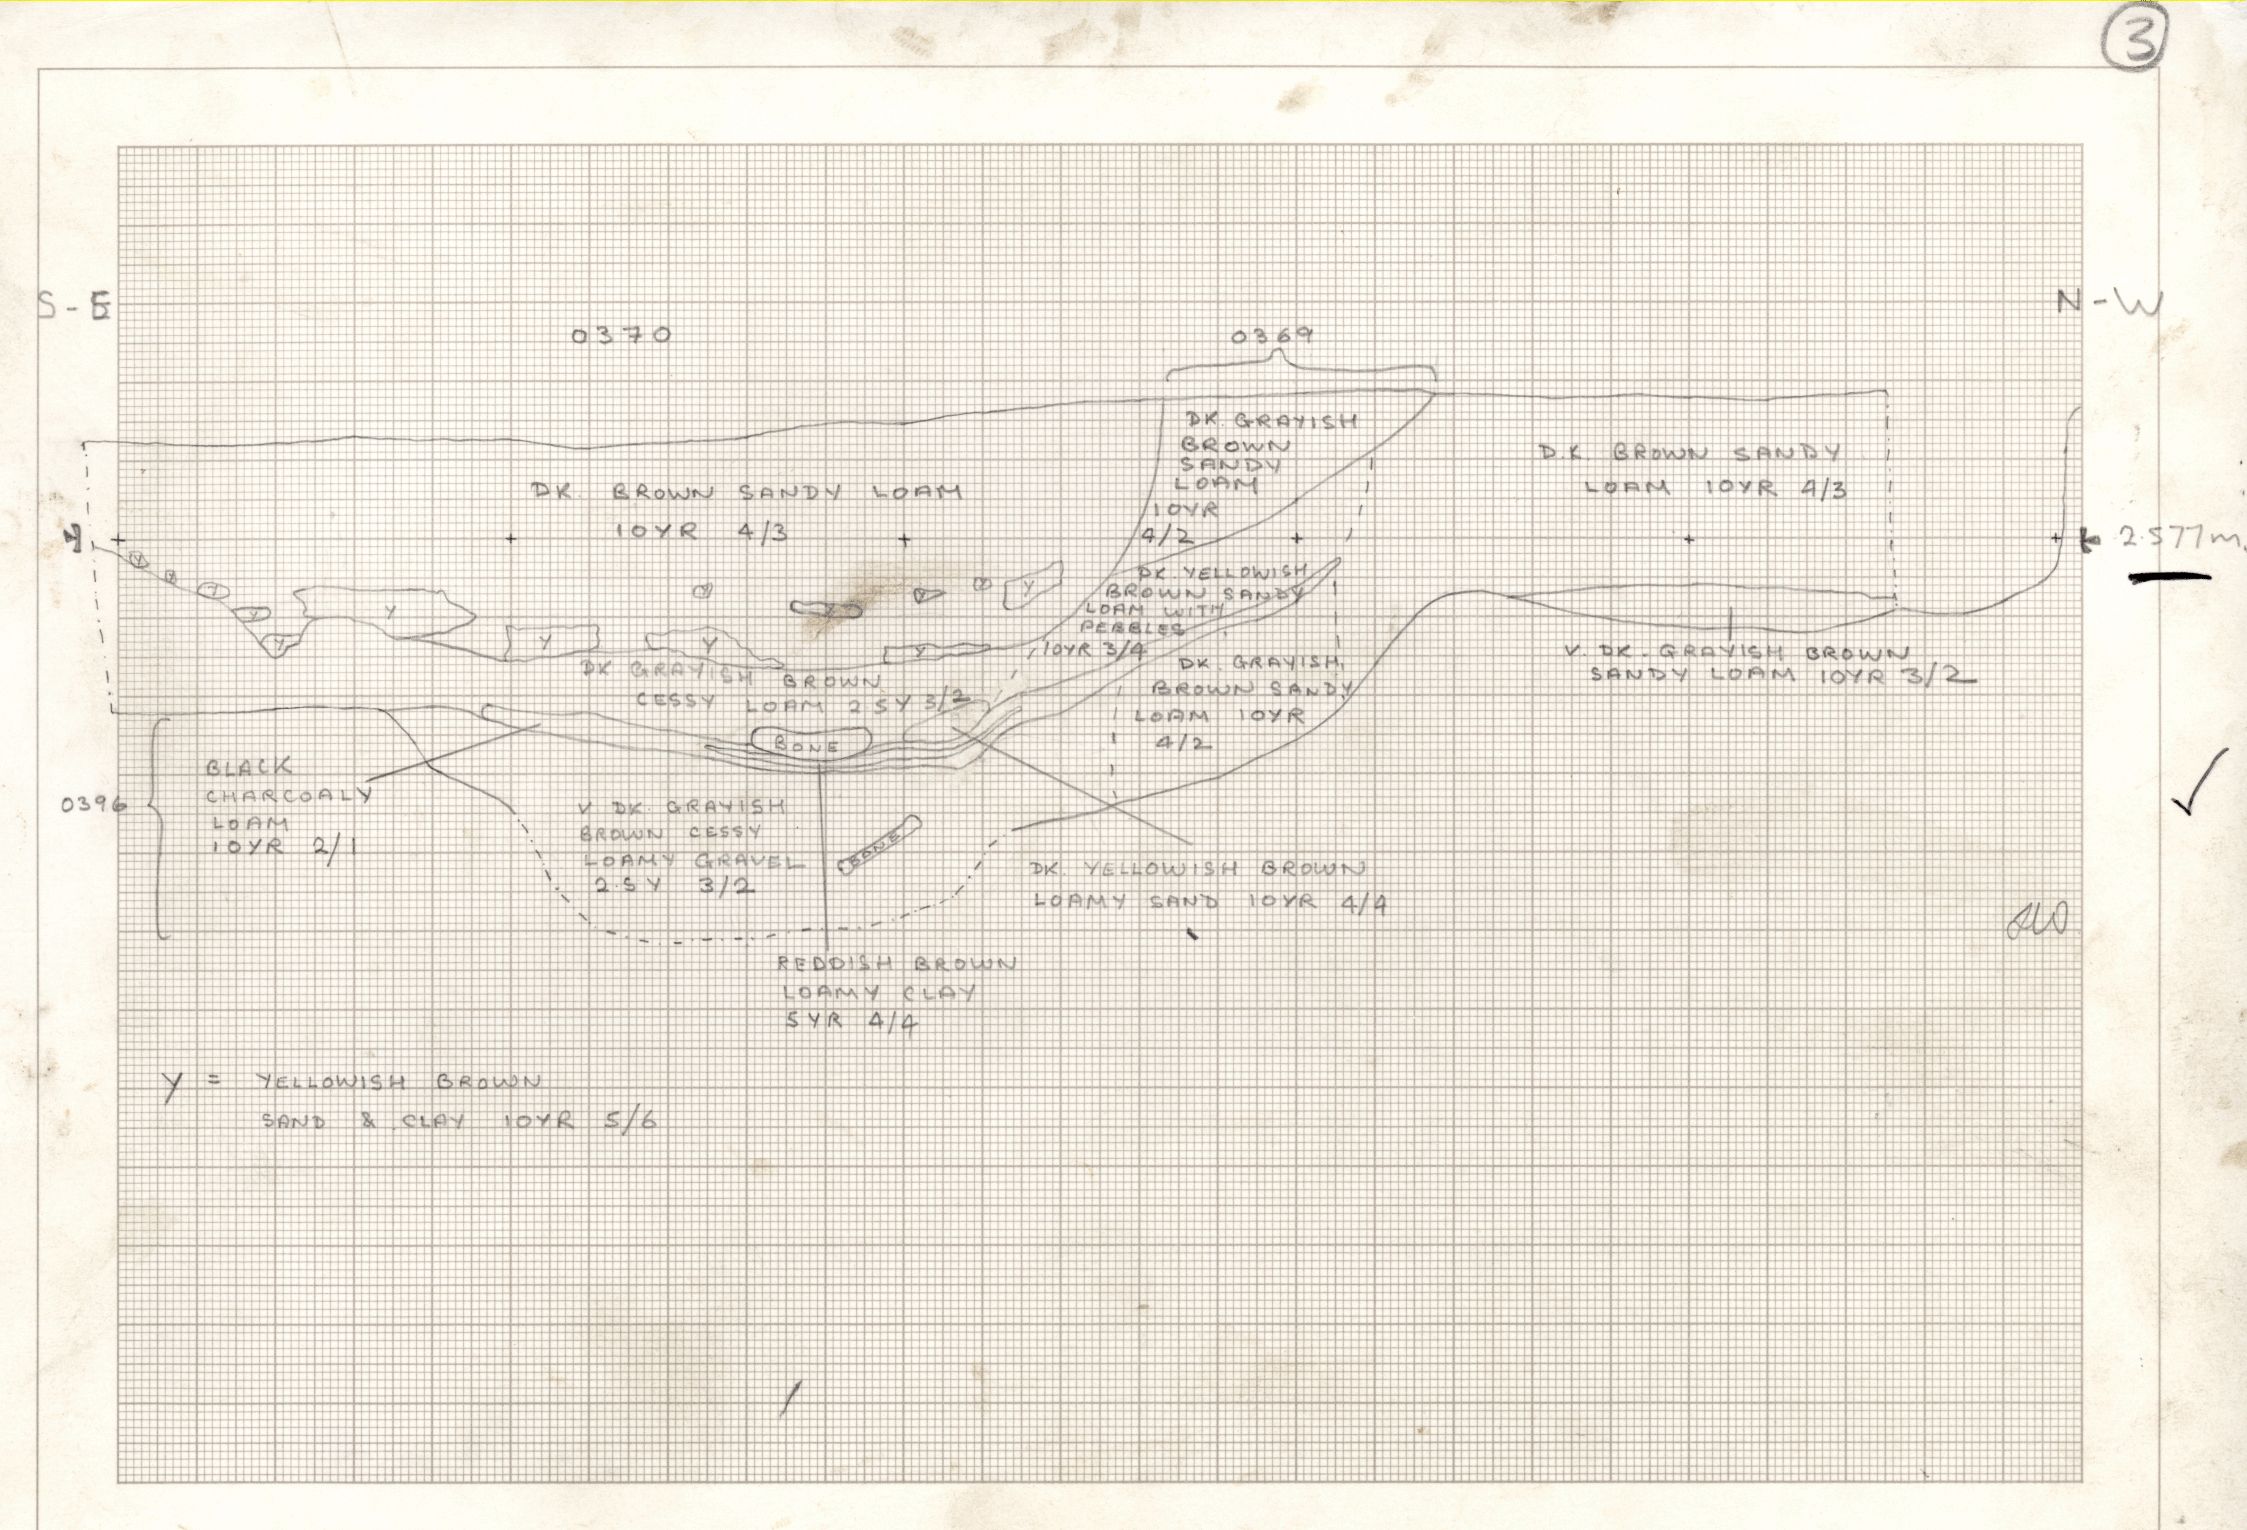 3
S-E
N-W
0370
0369
DK. GRAYISH
BROWN
SANDY
LOAM
10YR
4/2
DK. BROWN SANDY LOAM
10YR 4/3
D.K. BROWN SANDY
LOAM 10YR 4/3
2.577m.
Y
Y
Y
Y
Y
Y
Y
Y
Y
Y
Y
Y
Y
Y
DK. YELLOWISH
BROWN SANDY
LOAM WITH
PEBBLES
10YR 3/4
DK GRAYISH BROWN
CESSY LOAM 2.5Y 3/2
DK. GRAYISH
BROWN SANDY
LOAM 10YR
4/2
V. DK. GRAYISH BROWN
SANDY LOAM 10YR 3/2
BONE
0396
BLACK
CHARCOALY
LOAM
10YR 2/1
V DK. GRAYISH
BROWN CESSY
LOAMY GRAVEL
2.5Y 3/2
BONE
DK. YELLOWISH BROWN
LOAMY SAND 10YR 4/4
REDDISH BROWN
LOAMY CLAY
5YR 4/4
Y = YELLOWISH BROWN
SAND & CLAY 10YR 5/6